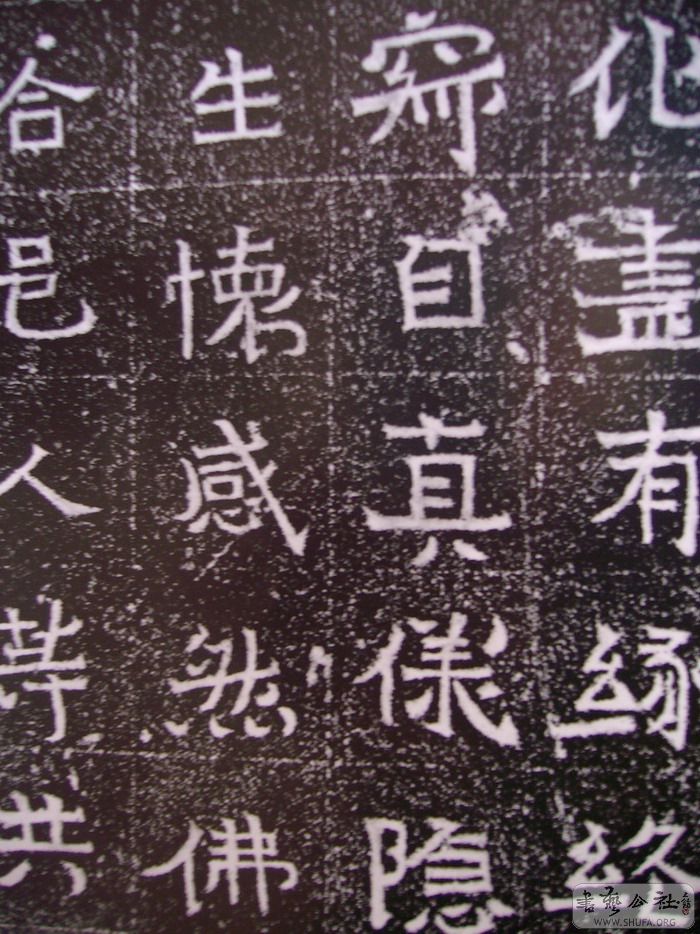 化盡有縁終
穽自真㒒隐
生懐感然佛
合邑人䓁共
書藝公社
WWW.SHUFA.ORG